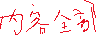 内容全部